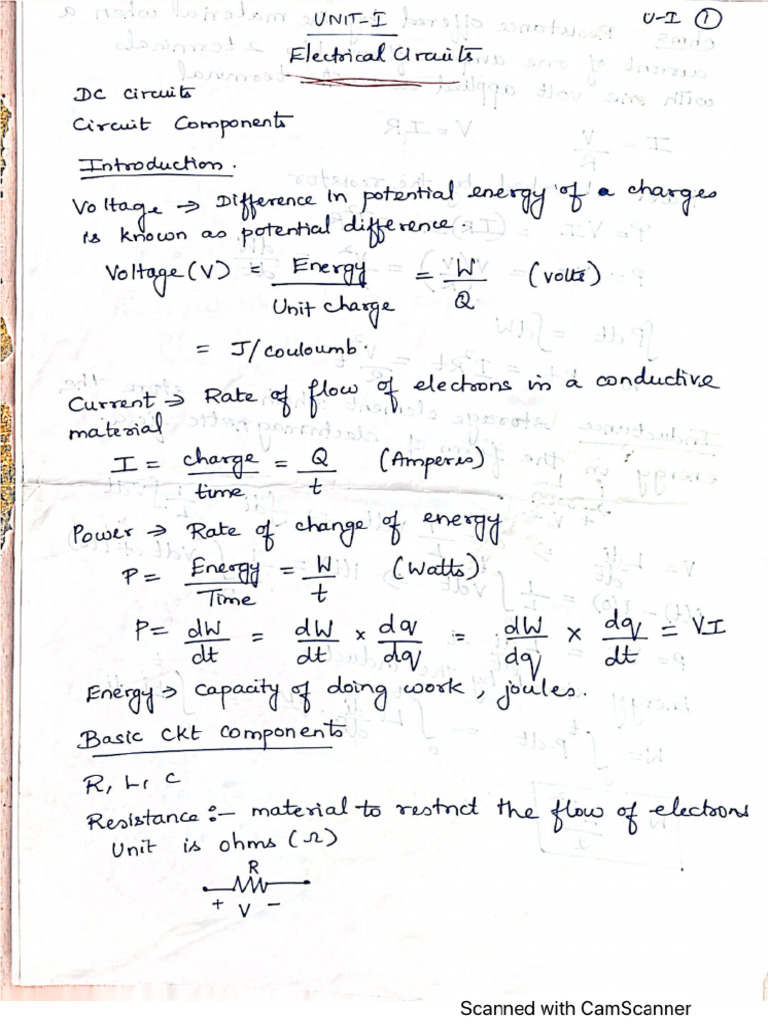 UNIT-I
U-I ①
Electrical Circuits
DC Circuits
Circuit Components
Introduction.
Voltage → Difference in potential energy of a charges
is known as potential difference.
Voltage (V) = Energy / Unit charge = W / Q (volts)
= J/couloumb.
Current → Rate of flow of electrons in a conductive
material
I = charge / time = Q / t (Amperes)
Power → Rate of change of energy
P = Energy / Time = W / t (Watts)
P = dW/dt = dW/dt × dq/dq = dW/dq × dq/dt = VI
Energy → Capacity of doing work, joules.
Basic Ckt Components
R, L, C
Resistance :- material to restrict the flow of electrons
Unit is ohms (Ω)
R
+ V -
Scanned with CamScanner